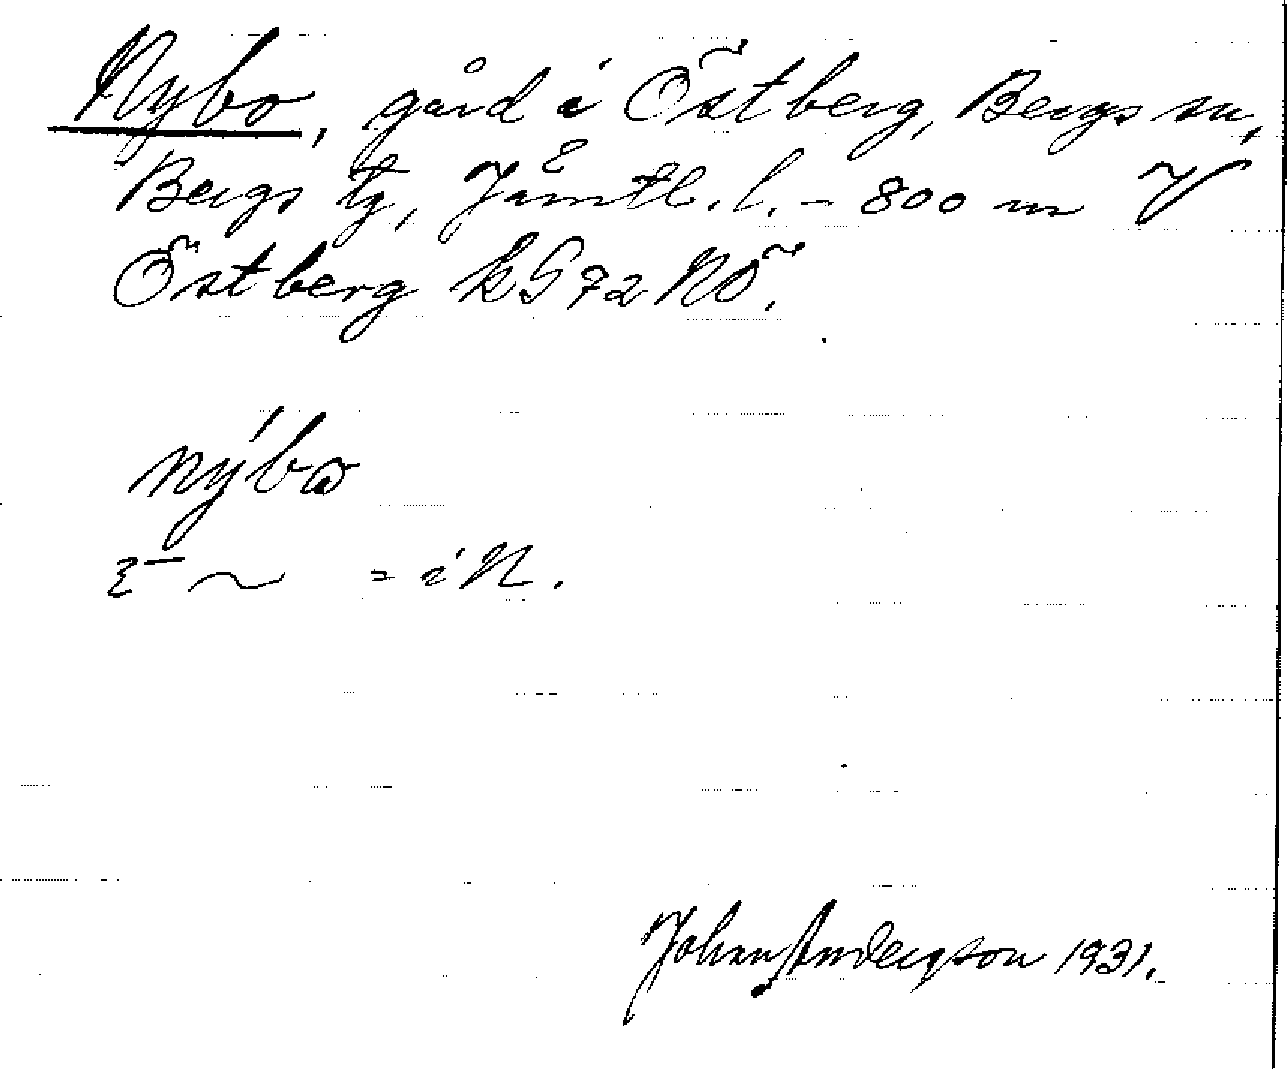 Nybo, gård i Östberg, Bergs sn,
Bergs tg, Jämtl. l. - 800 m V
Östberg k G 72 NÖ.
nýbɷ
= i N.
Johan Anderson 1931.